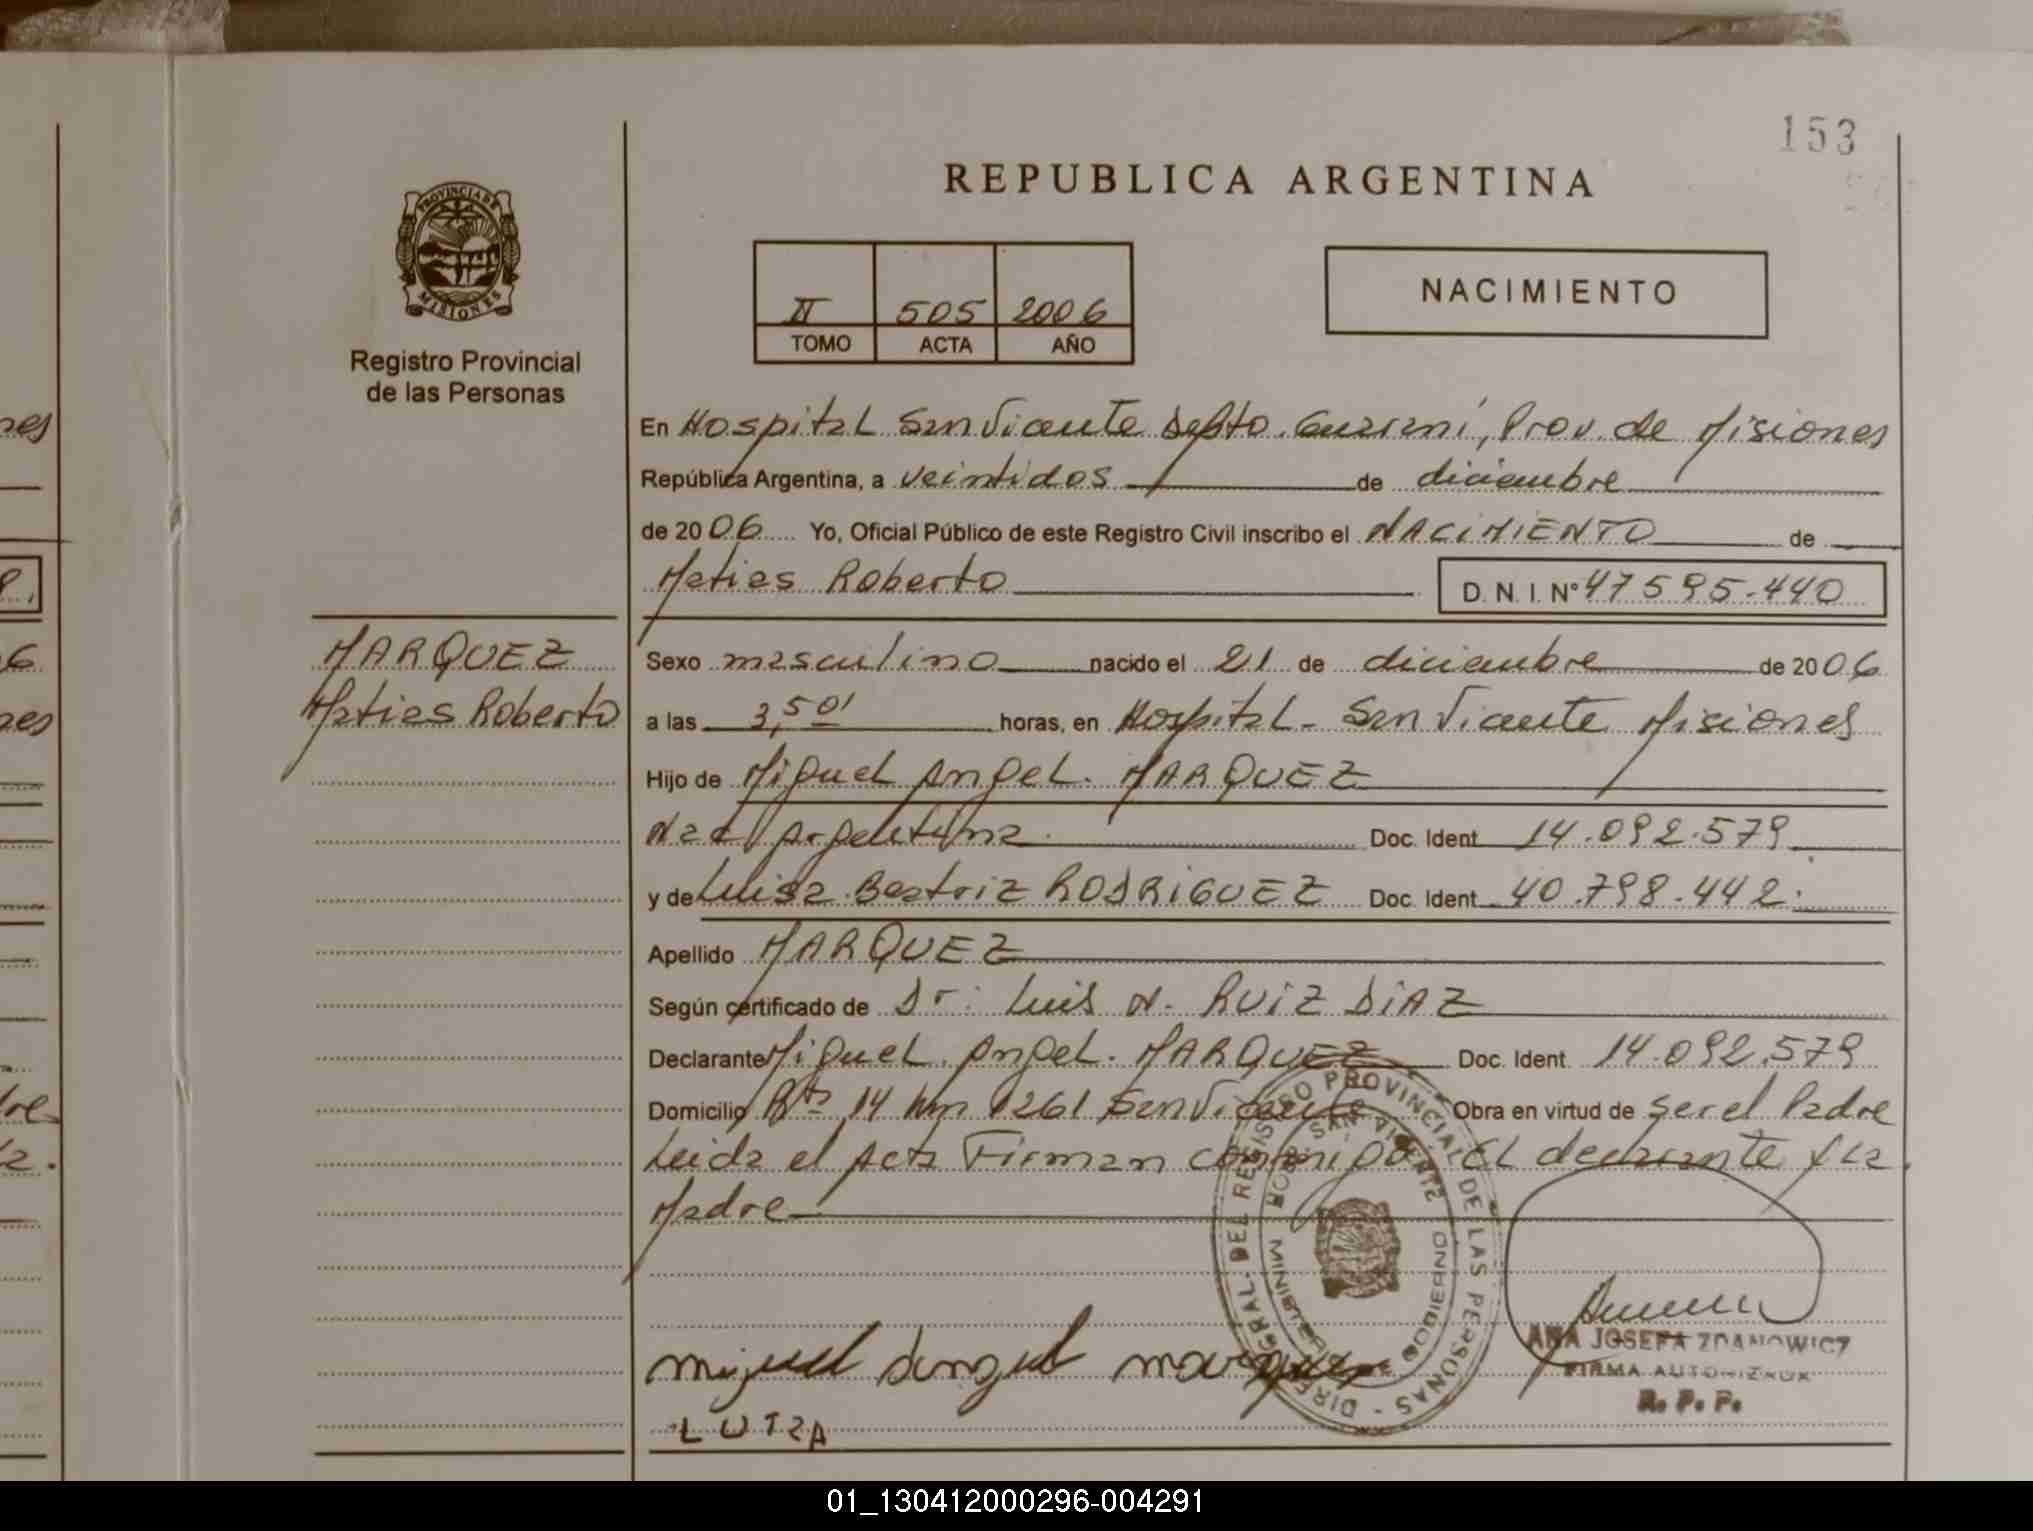 153
REPUBLICA ARGENTINA
PROVINCIA DE MISIONES
Registro Provincial
de las Personas
II 505 2006
TOMO ACTA AÑO
NACIMIENTO
En Hospital San Vicente Depto. Guaraní, Prov. de Misiones
República Argentina, a veintidos de diciembre
de 2006 Yo, Oficial Público de este Registro Civil inscribo el NACIMIENTO de
Matias Roberto D.N.I. Nº 47595.440
MARQUEZ
Matias Roberto
Sexo masculino nacido el 21 de diciembre de 2006
a las 3,50' horas, en Hospital - San Vicente Misiones
Hijo de Miguel Angel. MARQUEZ
Nac. Argentina. Doc. Ident 14.092.579
y de Luisa Beatriz RODRIGUEZ Doc. Ident 40.798.442
Apellido MARQUEZ
Según certificado de Dr: Luis N. RUIZ DIAZ
Declarante Miguel Angel. MARQUEZ Doc. Ident. 14.092.579
Domicilio Rta 14 Km 1261 San Vicente Obra en virtud de ser el Padre
Leida el Acta Firman conmigo El declarante y la
Madre
DIREC. GRAL. DEL REGISTRO PROVINCIAL DE LAS PERSONAS
HOSP. SAN VICENTE
MINISTERIO DE GOBIERNO
miguel angel marquez
LUIZA
ANA JOSEFA ZDANOWICZ
FIRMA AUTORIZADA
R. P. P.
01_130412000296-004291